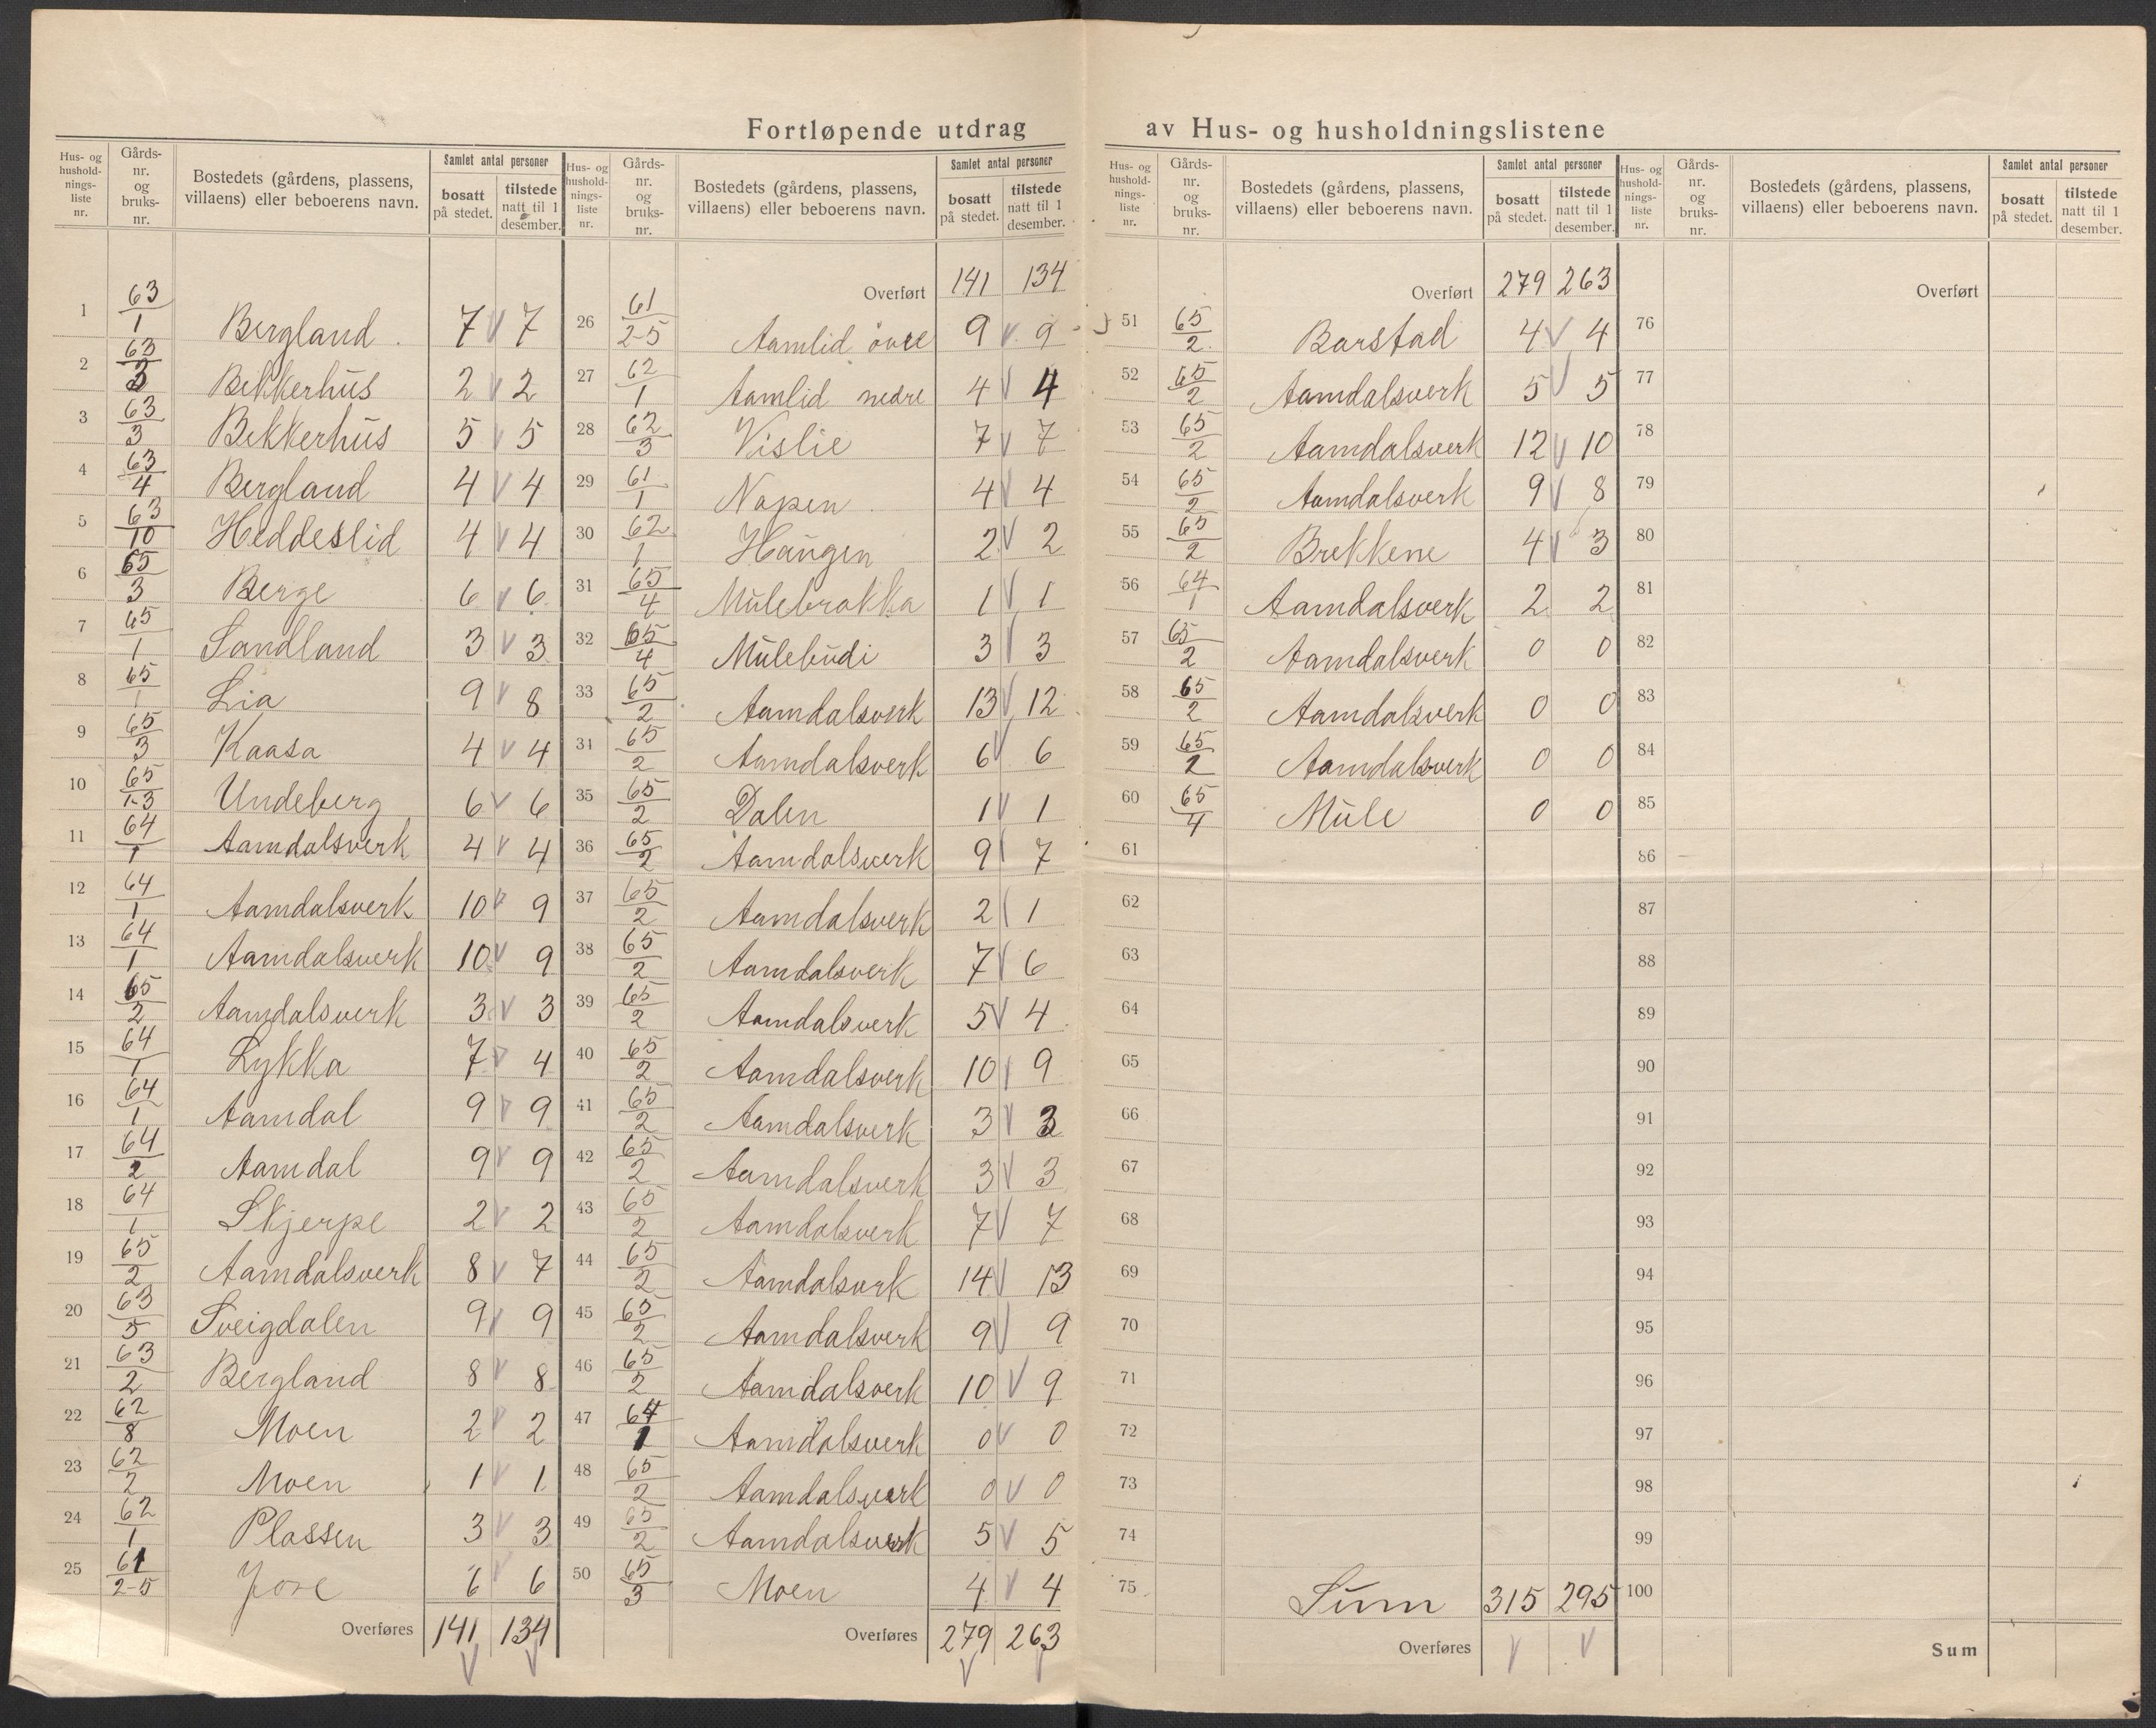 Fortløpende utdrag av Hus- og husholdningslistene
Hus- og hushold-nings-liste nr. | Gårds-nr. og bruks-nr. | Bostedets (gårdens, plassens, villaens) eller beboerens navn. | Samlet antal personer | bosatt på stedet. | tilstede natt til 1 desember.
1 63/1 Bergland. 7 v 7
2 63/2 Bekkerhus 2 v 2
3 63/3 Bekkerhus 5 v 5
4 63/4 Bergland 4 v 4
5 63/10 Heddeslid 4 v 4
6 65/3 Berge 6 v 6
7 65/1 Sandland 3 v 3
8 65/1 Lia 9 v 8
9 65/3 Kaasa 4 v 4
10 65/1-3 Undeberg 6 v 6
11 64/1 Aamdalsverk 4 v 4
12 64/1 Aamdalsverk 10 v 9
13 64/1 Aamdalsverk 10 v 9
14 65/2 Aamdalsverk 3 v 3
15 64/1 Lykka 7 v 4
16 64/1 Aamdal 9 v 9
17 64/2 Aamdal 9 v 9
18 64/1 Skjerpe 2 v 2
19 65/2 Aamdalsverk 8 v 7
20 63/5 Sveigdalen 9 v 9
21 63/2 Bergland 8 v 8
22 62/8 Moen 2 v 2
23 62/2 Moen 1 v 1
24 62/1 Plassen 3 v 3
25 61/2-5 Jore 6 v 6
Overføres 141 134
v v
Hus- og hushold-nings-liste nr. | Gårds-nr. og bruks-nr. | Bostedets (gårdens, plassens, villaens) eller beboerens navn. | Samlet antal personer | bosatt på stedet. | tilstede natt til 1 desember.
Overført 141 134
26 61/2-5 Aamlid övre 9 v 9
27 62/1 Aamlid nedre 4 v 4
28 62/3 Vislie 7 v 7
29 61/1 Napen. 4 v 4
30 62/1 Haugen 2 v 2
31 65/4 Mulebrakka 1 v 1
32 65/4 Mulebudi 3 v 3
33 65/2 Aamdalsverk 13 v 12
34 65/2 Aamdalsverk 6 v 6
35 65/2 Dalen 1 v 1
36 65/2 Aamdalsverk 9 v 7
37 65/2 Aamdalsverk 2 v 1
38 65/2 Aamdalsverk 7 v 6
39 65/2 Aamdalsverk 5 v 4
40 65/2 Aamdalsverk 10 v 9
41 65/2 Aamdalsverk 3 v 3
42 65/2 Aamdalsverk 3 v 3
43 65/2 Aamdalsverk 7 v 7
44 65/2 Aamdalsvrk 14 v 13
45 65/2 Aamdalsverk 9 v 9
46 65/2 Aamdalsverk 10 v 9
47 64/1 Aamdalsverk 0 v 0
48 65/2 Aamdalsverk 0 v 0
49 65/2 Aamdalsverk 5 v 5
50 65/3 Moen 4 v 4
Overføres 279 263
v v
Hus- og hushold-nings-liste nr. | Gårds-nr. og bruks-nr. | Bostedets (gårdens, plassens, villaens) eller beboerens navn. | Samlet antal personer | bosatt på stedet. | tilstede natt til 1 desember.
Overført 279 263
51 65/2 Barstad 4 v 4
52 65/2 Aamdalsverk 5 v 5
53 65/2 Aamdalsverk 12 v 10
54 65/2 Aamdalsverk 9 v 8
55 65/2 Brekkene 4 v 3
56 64/1 Aamdalsverk 2 2
57 65/2 Aamdalsverk 0 0
58 65/2 Aamdalsverk 0 0
59 65/2 Aamdalsverk 0 0
60 65/4 Mule 0 0
61
62
63
64
65
66
67
68
69
70
71
72
73
74
75 Sum 315 295
Overføres v v
Hus- og hushold-nings-liste nr. | Gårds-nr. og bruks-nr. | Bostedets (gårdens, plassens, villaens) eller beboerens navn. | Samlet antal personer | bosatt på stedet. | tilstede natt til 1 desember.
Overført
76
77
78
79
80
81
82
83
84
85
86
87
88
89
90
91
92
93
94
95
96
97
98
99
100
Sum